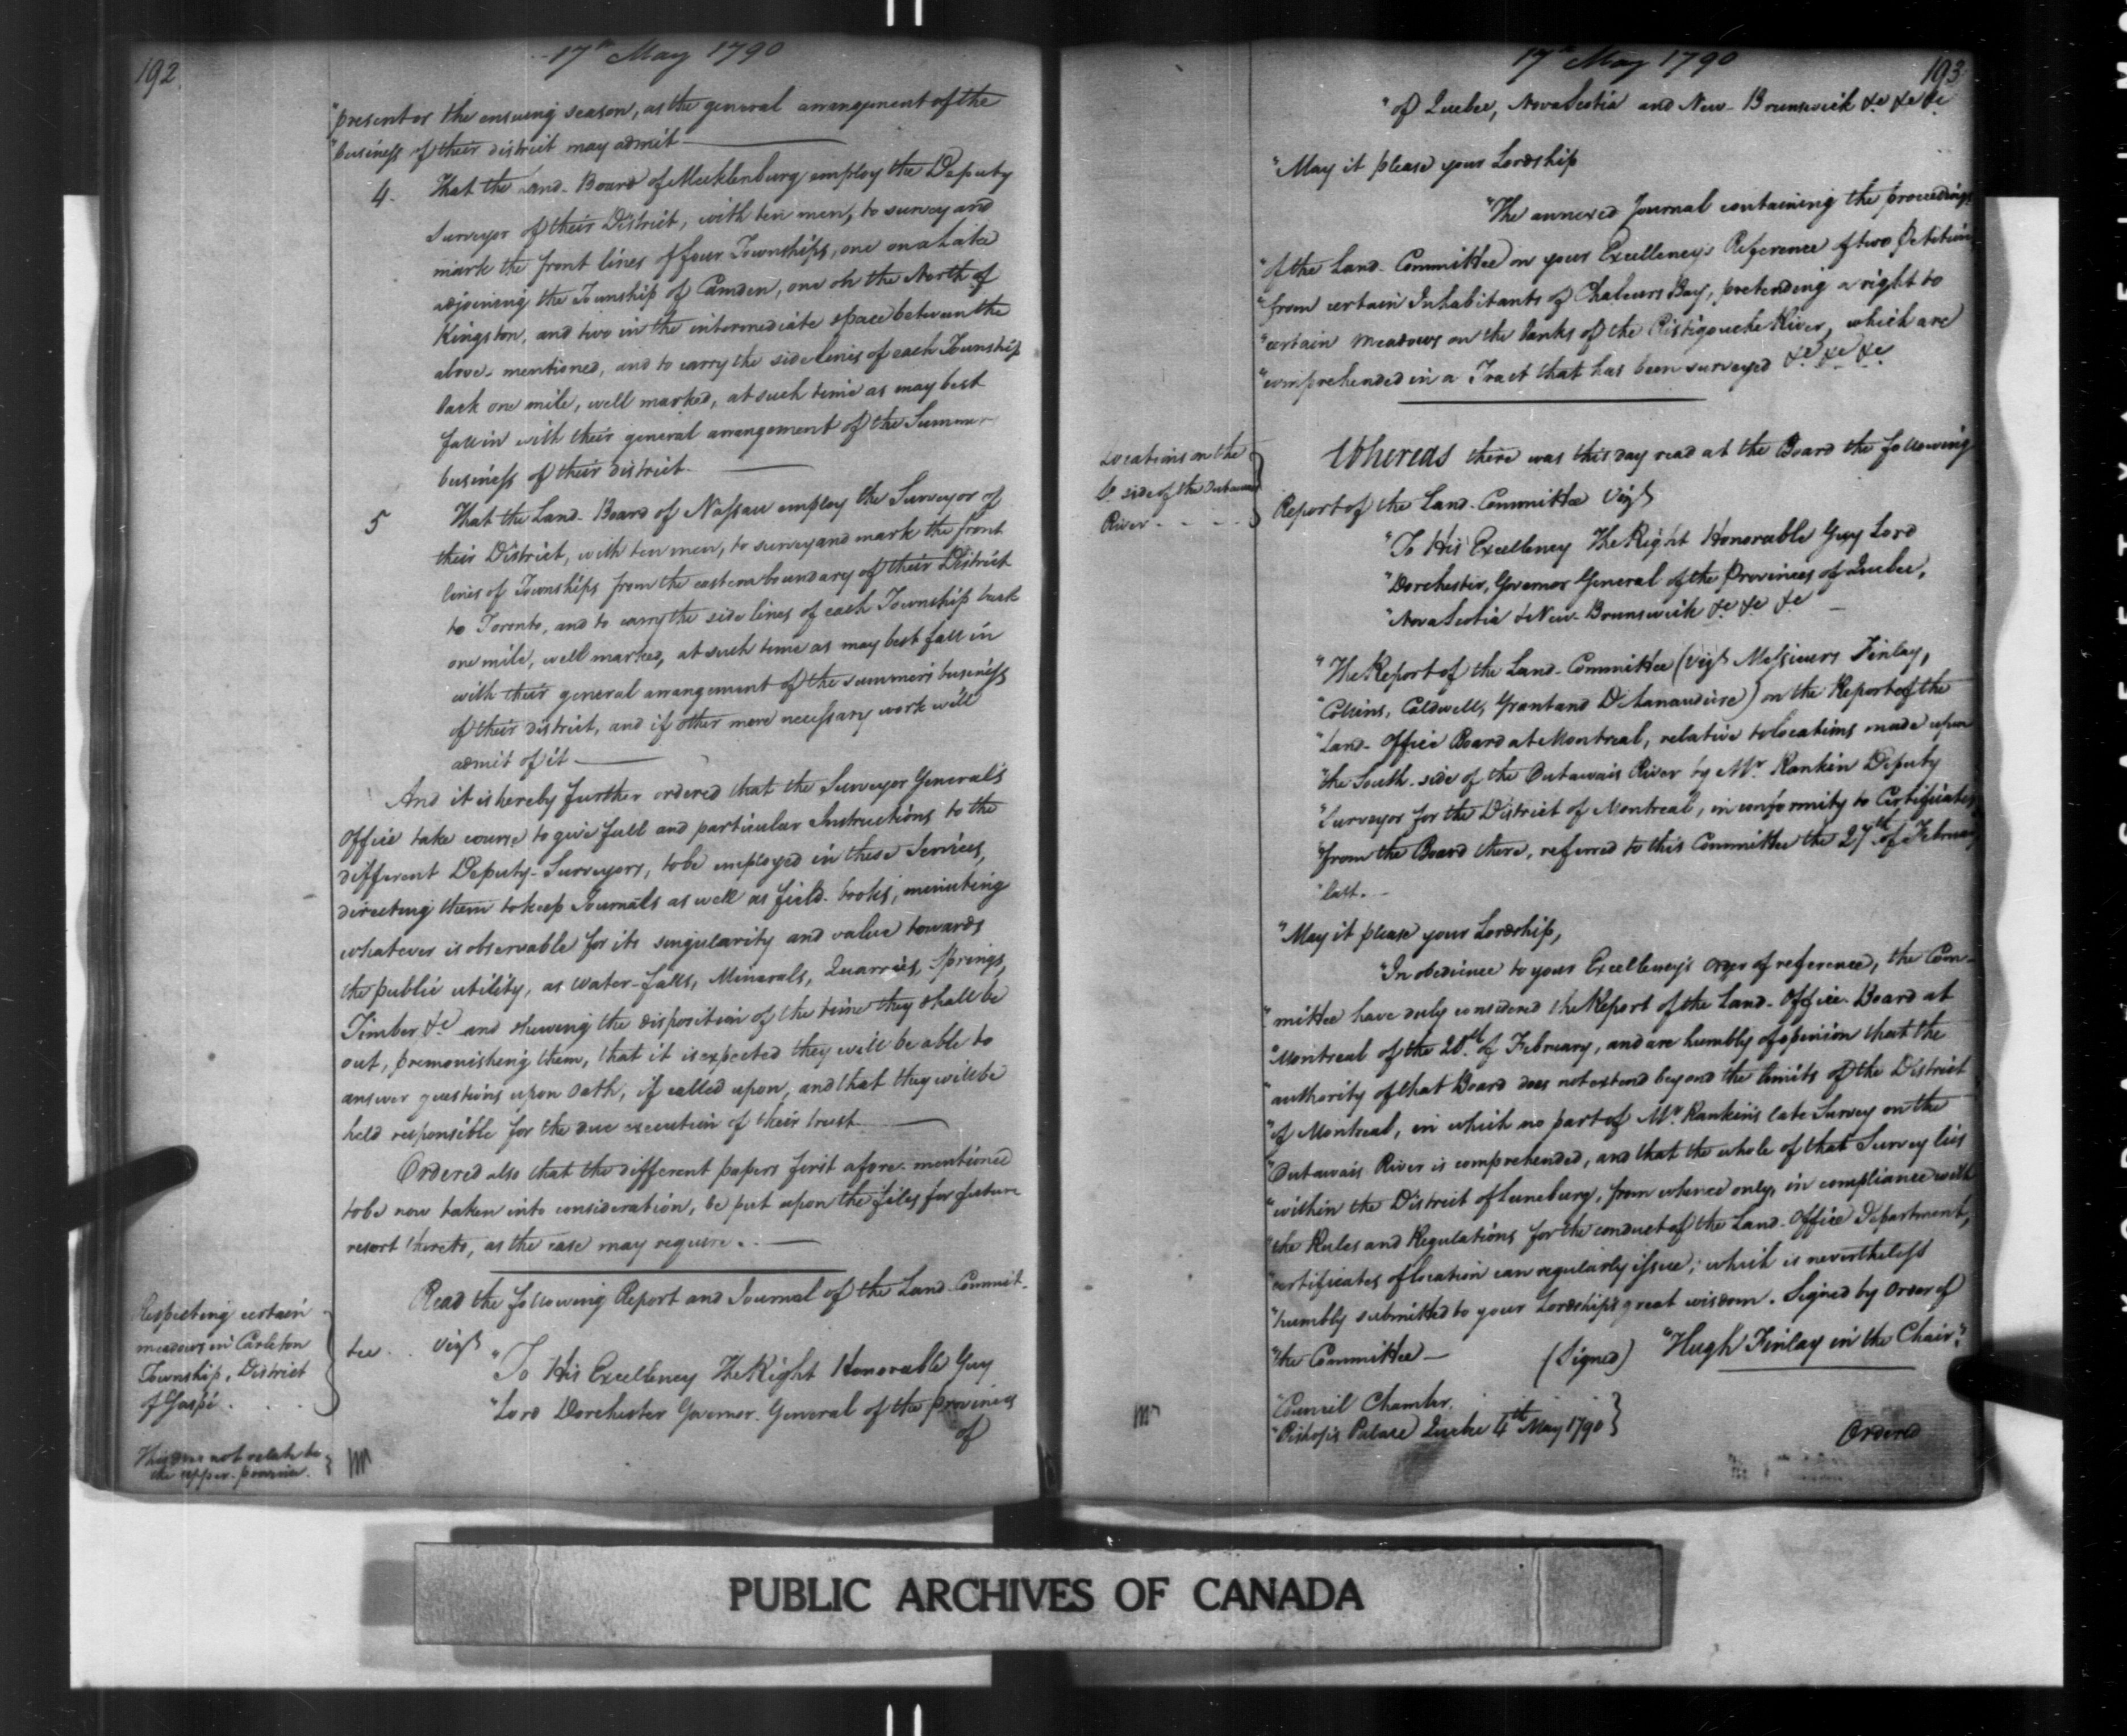 192
17th May 1790
"present or the ensuing season, as the general arrangement of the
"business of their district may admit
4. That the Land-Board of Mecklenburg employ the Deputy
Surveyor of their District, with ten men, to survey and
mark the front lines of four Townships, one on a Lake
adjoining the Township of Camden, one on the North of
Kingston, and two in the intermediate space between the
above-mentioned, and to carry the side lines of each Township
back one mile, well marked, at such time as may best
fall in with their general arrangement of the Summer
business of their district.
5 That the Land-Board of Nassau employ the Surveyor of
their District, with ten men, to survey and mark the front
lines of Townships from the eastern boundary of their District
to Toronto, and to carry the side lines of each Township back
one mile, well marked, at such time as may best fall in
with their general arrangement of the summer's business
of their district, and if other more necessary work will
admit of it
And it is hereby further ordered that the Surveyor General's
Office take course to give full and particular Instructions to the
different Deputy-Surveyors, to be employed in these Services,
directing them to keep Journals as well as field-books, minuting
whatever is observable for its singularity and value towards
the public utility, as Water-falls, Minerals, Quarries, Springs,
Timber &c and shewing the disposition of the time they shall be
out, premonishing them, that it is expected they will be able to
answer questions upon Oath, if called upon, and that they will be
held responsible for the due execution of their trust
Ordered also that the different papers first afore-mentioned
to be now taken into consideration, be put upon the files for future
resort thereto, as the case may require.
Read the following Report and Journal of the Land-Commit-
tee Vizt
Respecting certain
meadows in Carleton
Township, District
of Gaspé
"To His Excellency The Right Honorable Guy
"Lord Dorchester Governor-General of the provinces
of
This does not relate to
the upper-province.
17th May 1790
193
"of Quebec, Nova Scotia and New-Brunswick &c &c &c
"May it please your Lordship
"The annexed Journal containing the proceedings
"of the Land-Committee on your Excellency's Reference of two Petitions
"from certain Inhabitants of Chaleurs Bay, pretending a right to
"certain meadows on the banks of the Ristigouche River, which are
"comprehended in a Tract that has been surveyed &c &c &c
Locations on the
S. side of the Outawais
River
Whereas there was this day read at the Board the following
Report of the Land-Committee Vizt
"To His Excellency The Right Honorable Guy Lord
"Dorchester, Governor General of the Provinces of Quebec,
"Nova Scotia & New-Brunswick &c &c &c
"The Report of the Land-Committee (Vizt Messieurs Finlay,
"Collins, Caldwell, Grant and De Lanaudiere) on the Report of the
"Land-Office Board at Montreal, relative to locations made upon
"the South-side of the Outawais River by Mr Rankin Deputy
"Surveyor for the District of Montreal, in conformity to Certificates
"from the Board there, referred to this Committee the 27th of February
"last.
"May it please your Lordship,
"In obedience to your Excellency's Order of reference, the Com-
"mittee have duly considered the Report of the Land-Office-Board at
"Montreal of the 20th of February, and are humbly of opinion that the
"authority of that Board does not extend beyond the limits of the District
"of Montreal, in which no part of Mr Rankin's late Survey on the
"Outawais River is comprehended, and that the whole of that Survey lies
"within the District of Luneburg, from whence only, in compliance with
"the Rules and Regulations for the conduct of the Land-Office Department,
"certificates of location can regularly issue; which is nevertheless
"humbly submitted to your Lordship's great wisdom. Signed by Order of
"the Committee (Signed) "Hugh Finlay in the Chair."
"Council Chamber
"Bishop's Palace Quebec 4th May 1790
Ordered
PUBLIC ARCHIVES OF CANADA